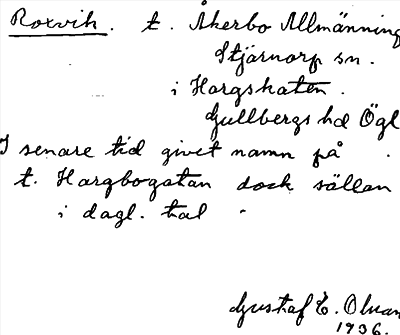 Roxvik. t. Åkerbo Allmänning
Stjärnorp sn.
i Hargskaten.
Gullbergs hd Ögl
I senare tid givet namn på
t. Hargbogatan dock sällan
i dagl. tal
Gustaf E.
1936.